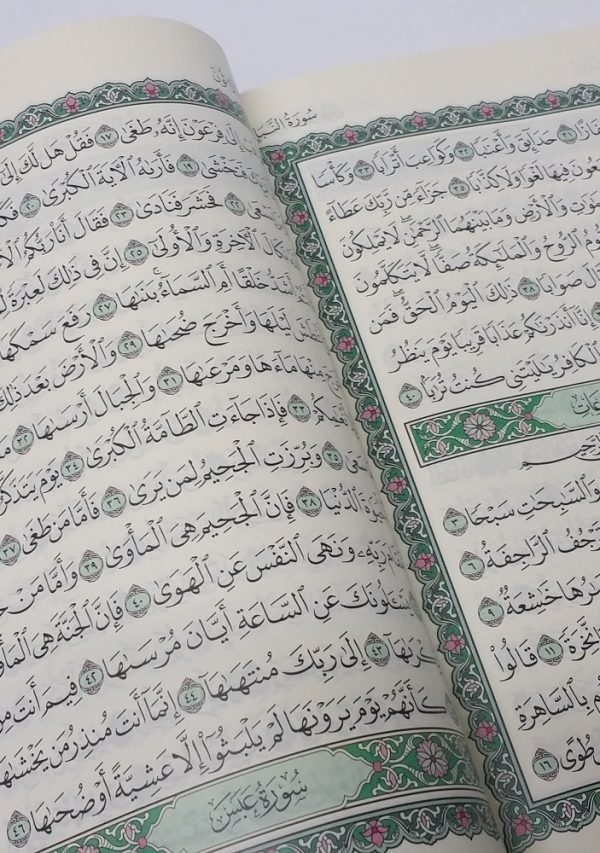 حَدَآئِقَ وَأَعْنَٰبًا ٣٢ وَكَوَاعِبَ أَتْرَابًا ٣٣ وَكَأْسًا
فِيهَا لَغْوًا وَلَا كِذَّٰبًا ٣٥ جَزَآءً مِّن رَّبِّكَ عَطَآءً
وَٱلْأَرْضِ وَمَا بَيْنَهُمَا ٱلرَّحْمَٰنِ لَا يَمْلِكُونَ
ٱلرُّوحُ وَٱلْمَلَٰٓئِكَةُ صَفًّا لَّا يَتَكَلَّمُونَ
صَوَابًا ٣٨ ذَٰلِكَ ٱلْيَوْمُ ٱلْحَقُّ فَمَن
إِنَّآ أَنذَرْنَٰكُمْ عَذَابًا قَرِيبًا يَوْمَ يَنظُرُ
ٱلْكَافِرُ يَٰلَيْتَنِى كُنتُ تُرَٰبًۢا ٤٠
وَٱلسَّٰبِحَٰتِ سَبْحًا ٣
تَرْجُفُ ٱلرَّاجِفَةُ ٦
خَٰشِعَةٌ ٩
نَّخِرَةً ١١ قَالُوا۟
بِٱلسَّاهِرَةِ
طُوًى ١٦
إِلَىٰ فِرْعَوْنَ إِنَّهُۥ طَغَىٰ ١٧ فَقُلْ هَل لَّكَ إِلَىٰٓ
فَتَخْشَىٰ ١٩ فَأَرَىٰهُ ٱلْءَايَةَ ٱلْكُبْرَىٰ ٢٠
٢٢ فَحَشَرَ فَنَادَىٰ ٢٣ فَقَالَ أَنَا۠ رَبُّكُمُ
نَكَالَ ٱلْءَاخِرَةِ وَٱلْأُولَىٰٓ ٢٥ إِنَّ فِى ذَٰلِكَ لَعِبْرَةً
أَشَدُّ خَلْقًا أَمِ ٱلسَّمَآءُ بَنَىٰهَا ٢٧ رَفَعَ سَمْكَهَا
لَيْلَهَا وَأَخْرَجَ ضُحَىٰهَا ٢٩ وَٱلْأَرْضَ بَعْدَ ذَٰلِكَ
مِنْهَا مَآءَهَا وَمَرْعَىٰهَا ٣١ وَٱلْجِبَالَ أَرْسَىٰهَا ٣٢
٣٣ فَإِذَا جَآءَتِ ٱلطَّآمَّةُ ٱلْكُبْرَىٰ ٣٤ يَوْمَ يَتَذَكَّرُ
٣٥ وَبُرِّزَتِ ٱلْجَحِيمُ لِمَن يَرَىٰ ٣٦ فَأَمَّا مَن طَغَىٰ ٣٧
ٱلدُّنْيَا ٣٨ فَإِنَّ ٱلْجَحِيمَ هِىَ ٱلْمَأْوَىٰ ٣٩ وَأَمَّا مَنْ
رَبِّهِۦ وَنَهَى ٱلنَّفْسَ عَنِ ٱلْهَوَىٰ ٤٠ فَإِنَّ ٱلْجَنَّةَ هِىَ
يَسْـَٔلُونَكَ عَنِ ٱلسَّاعَةِ أَيَّانَ مُرْسَىٰهَا ٤٢ فِيمَ أَنتَ مِن
ذِكْرَىٰهَآ ٤٣ إِلَىٰ رَبِّكَ مُنتَهَىٰهَآ ٤٤ إِنَّمَآ أَنتَ مُنذِرُ مَن يَخْشَىٰهَا
كَأَنَّهُمْ يَوْمَ يَرَوْنَهَا لَمْ يَلْبَثُوٓا۟ إِلَّا عَشِيَّةً أَوْ ضُحَىٰهَا ٤٦
سُورَةُ عَبَسَ